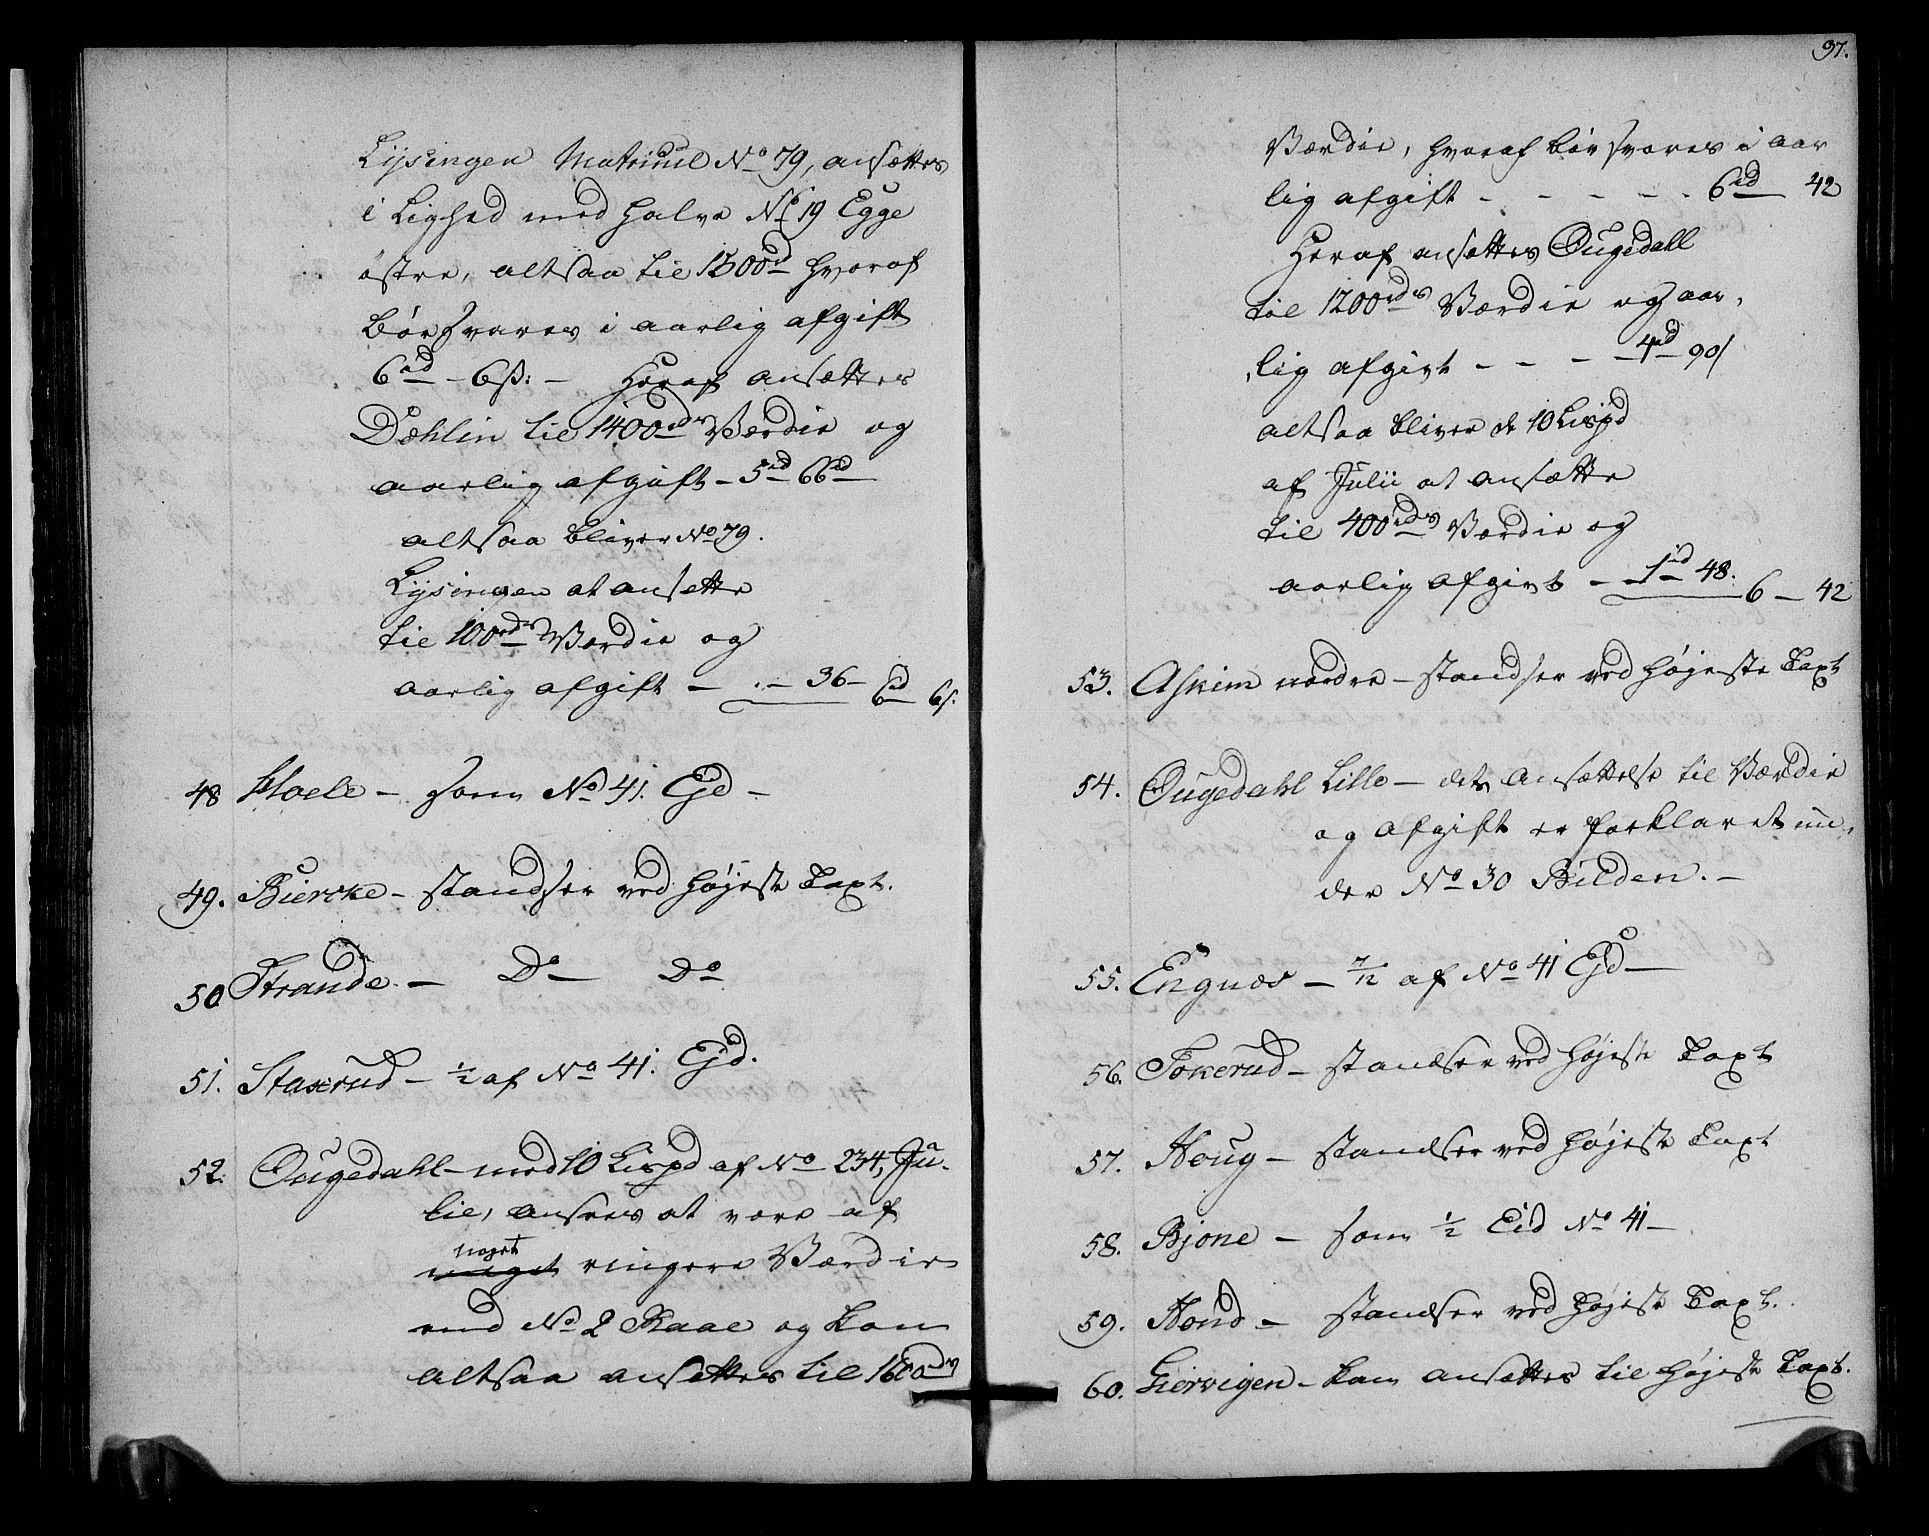 Lysingen Matricul No 79, ansættes
i Lighed med halve No 19 Egge
østre, altsaa til 1500rd hvoraf
bør svares i aarlig afgift
6rd - 6ß: - Heraf ansættes
Døhlin til 1400rds Værdie og
aarlig afgift - 5rd 66rd
altsaa bliver No 79.
Lysingen at ansette
til 100rds Værdie og
aarlig afgift - . - 36 - 6rd 6s.
48 Hoele - som No 41. Ejd -
49. Biercke - standser ved højeste Taxt.
50 Strande. - Do - Do
51. Staxrud - 1/2 af No 41. Ejd.
52. Ougedahl - med 10 Lispd af No 234, Ju-
lie, ansees at være af
noget
meget ringere Værdie
end No 2 Raae og kan
altsaa ansettes til 1600rds
97.
Værdie, hvoraf bør svares i aar
lig afgift - - - - - 6rd 42
Heraf ansettes Ougedall
til 1200rds Værdie og aar-
lig afgivt - - - - 4rd 90s
altsaa bliver de 10 Lispd
af Julii at ansætte
til 400rds Værdie og
aarlig afgivt - - 1rd 48. 6 - 42
53. Askim nordre - standser ved højeste Taxt
54. Ougedahl Lille - dets Ansættelse til Værdie
og Afgift er forklaret un-
der No 30 Bilden. -
55. Engnæs - 7/12 af No 41 Ejd -
56. Tokerud - standser ved højeste Taxt
57. Houg - standser ved højeste Taxt
58. Bjone - som 1/2 Eid No 41 -
59. Hond - standser ved højeste Taxt.
60. Giervigen - kan ansættes til højeste Taxt.